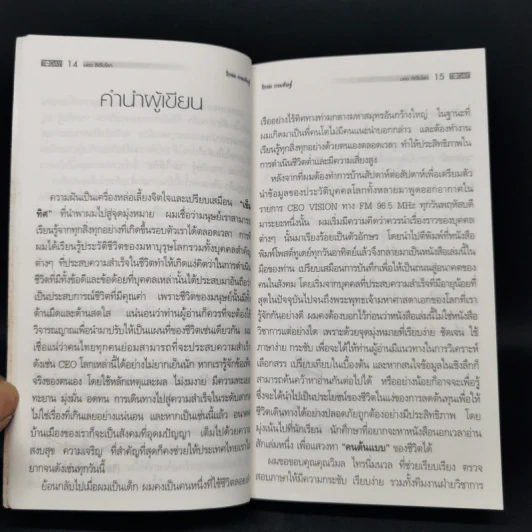 14
คำนำผู้เขียน
ความฝันเป็นเครื่องหล่อเลี้ยงจิตใจและเปรียบเสมือน "เข็ม
ทิศ" ที่นำพาผมไปสู่จุดมุ่งหมาย ผมเชื่อว่ามนุษย์เราสามารถ
เรียนรู้จากทุกสิ่งทุกอย่างที่เกิดขึ้นรอบตัวเราได้ตลอดเวลา การที่
ผมได้เรียนรู้ประวัติชีวิตของมหาบุรุษโลกรวมทั้งบุคคลสำคัญ
ต่างๆ ที่ประสบความสำเร็จในชีวิตทำให้เกิดแง่คิดว่าในการดำเนิน
ชีวิตที่มีทั้งข้อดีและข้อด้อยที่บุคคลเหล่านั้นได้ประสบมาอันถือว่า
เป็นประสบการณ์ชีวิตที่มีคุณค่า เพราะชีวิตของมนุษย์นั้นมีทั้ง
ด้านมืดและด้านสดใส แน่นอนว่าท่านผู้อ่านก็ควรที่จะต้องใช้
วิจารณญาณเพื่อนำมาปรับให้เป็นแผนที่ของชีวิตเช่นเดียวกัน ผม
เชื่อแน่ว่าคนไทยทุกคนย่อมสามารถที่จะประสบความสำเร็จ
ดังเช่น CEO โลกเหล่านี้ได้อย่างไม่ยากเย็นนัก หากเรารู้จักข้อเท็จ
จริงของตนเอง โดยใช้หลักเหตุและผล ไม่งมงาย มีความทะเยอ
ทะยาน มุ่งมั่น อดทน การเดินทางไปสู่ความสำเร็จในระดับสากล
ไม่ใช่เรื่องที่เกินเลยอย่างแน่นอน และหากเป็นเช่นนี้แล้ว อนาคต
บ้านเมืองของเราก็จะเป็นสังคมที่อุดมปัญญา เต็มไปด้วยความ
สงบสุข ความเจริญ ที่สำคัญที่สุดก็คงช่วยให้ประเทศไทยเราไม่
ยากจนดังเช่นทุกวันนี้
ย้อนกลับไปเมื่อผมเป็นเด็ก ผมคงเป็นคนหนึ่งที่ใช้ชีวิตลอยละล่อง
15
เรืออย่างไร้ทิศทางท่ามกลางมหาสมุทรอันกว้างใหญ่ ในฐานะที่
ผมเกิดมาเป็นพี่คนโตไม่มีคนแนะนำบอกกล่าว และต้องทำงาน
เรียนรู้ทุกสิ่งทุกอย่างด้วยตนเองตลอดเวลา ทำให้ประสิทธิภาพใน
การดำเนินชีวิตต่ำและมีความเสี่ยงสูง
หลังจากที่ผมต้องทำการบ้านสัปดาห์ต่อสัปดาห์เพื่อเตรียมตัว
นำข้อมูลของประวัติบุคคลโลกทั้งหลายมาพูดออกอากาศใน
รายการ CEO VISION ทาง FM 96.5 MHz ทุกวันพฤหัสบดี
มาระยะหนึ่งนั้น ผมเริ่มมีความคิดว่าควรนำเรื่องราวของบุคคล
ต่างๆ นั้นมาเรียงร้อยเป็นตัวอักษร โดยนำไปตีพิมพ์ที่หนังสือ
พิมพ์โพสต์ทูเดย์ทุกวันอาทิตย์แล้วจึงกลายมาเป็นหนังสือเล่มนี้ใน
มือของท่าน เปรียบเสมือนการบันทึกเพื่อให้เป็นถนนสู่อนาคตของ
คนในสังคม โดยเริ่มจากบุคคลที่ประสบความสำเร็จที่มีอายุน้อยที่
สุดในปัจจุบันไปจนถึงพระพุทธเจ้ามหาศาสดาเอกของโลกที่เรา
รู้จักกันอย่างดี ผมคงต้องบอกไว้ก่อนว่าหนังสือเล่มนี้ไม่ใช่หนังสือ
วิชาการแต่อย่างใด เพราะด้วยจุดมุ่งหมายที่เรียบง่าย ชัดเจน ใช้
ภาษาง่าย กระชับ เพื่อจะได้ให้ท่านผู้อ่านมีแนวทางในการวิเคราะห์
เลือกสรร เปรียบเทียบในเบื้องต้น และหากสนใจข้อมูลในเชิงลึกก็
สามารถค้นคว้าอ่านกันต่อไปได้ หรืออย่างน้อยก็อาจจะเพื่อรู้
ซึ่งจะได้นำไปเป็นประโยชน์ของชีวิตในแง่ของการลดต้นทุนเพื่อให้
ชีวิตเดินทางได้อย่างปลอดภัยถูกต้องอย่างมีประสิทธิภาพ โดย
มุ่งเน้นไปที่นักเรียน นักศึกษาที่อยากจะหาหนังสือนอกเวลาอ่าน
สักเล่มหนึ่ง เพื่อแสวงหา "คนต้นแบบ" ของชีวิตได้
ผมขอขอบคุณคุณวิมล ไทรนิ่มนวล ที่ช่วยเรียบเรียง ตรวจ
สอบภาษาให้มีความกระชับ เรียบง่าย รวมทั้งทีมงานฝ่ายวิชาการ